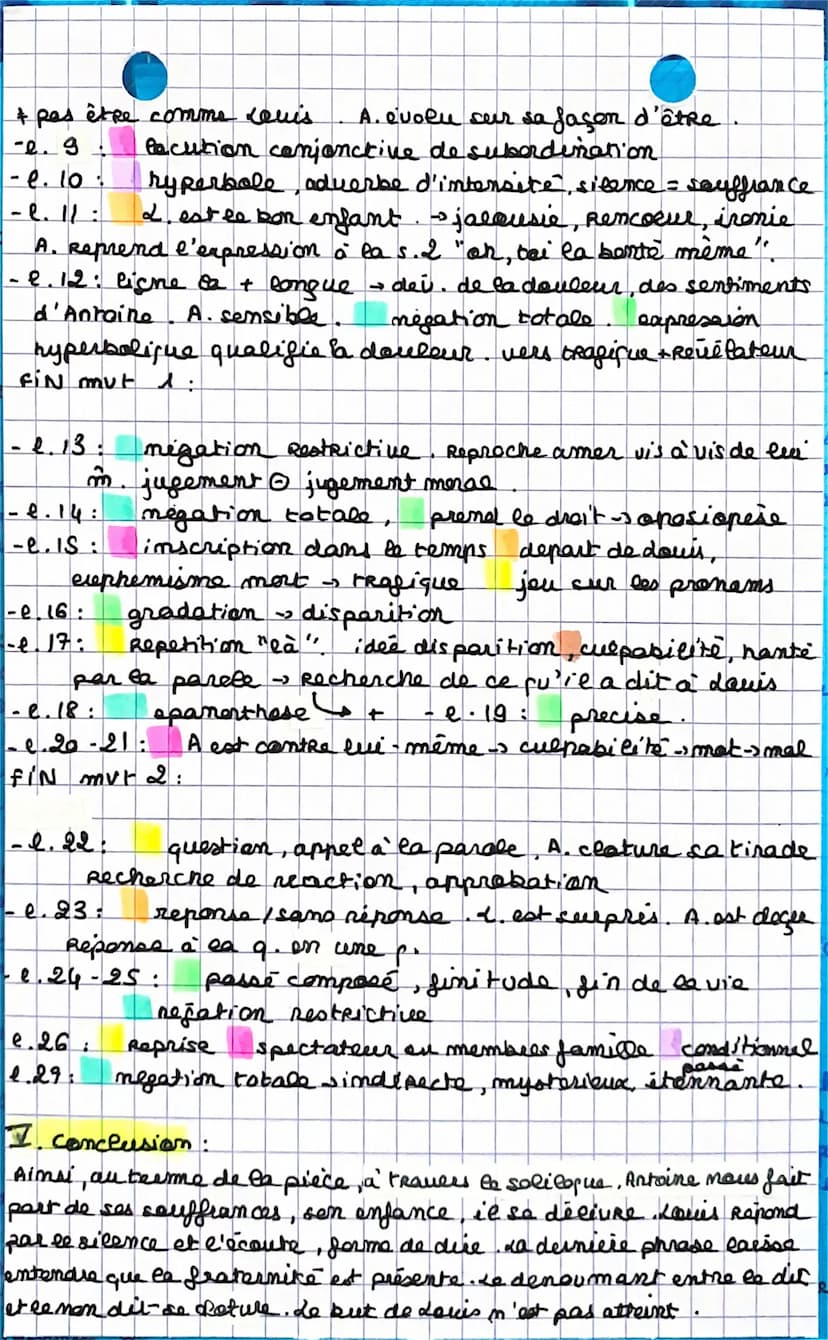 + pas être comme Louis. A. évolu sur sa façon d'être.
- l. 9 : locution conjonctive de subordination
- l. 10 : hyperbole, adverbe d'intensité, silence = souffrance
- l. 11 : L. est le bon enfant. → jalousie, rencoeur, ironie
A. Reprend l'expression à la s.2 "ah, toi la bonté même".
- l. 12 : ligne la + longue → dév. de la douleur, des sentiments
d'Antoine. A. sensible. négation totale. expression
hyperbolique qualifie la douleur. vers tragique + Révélateur
FiN mvt 1 :
- l. 13 : négation restrictive. Reproche amer vis à vis de lui
m̂. jugement ⊖ jugement moral
- l. 14 : négation totale, prend le droit → aposiopèse
- l. 15 : inscription dans le temps depart de Louis,
euphemisme mort → tragique jeu sur les pronoms
- l. 16 : gradation → disparition
- l. 17 : Repetition "là". ideé disparition, culpabilité, hanté
par la parole → Recherche de ce qu'il a dit à Louis
- l. 18 : epanorthose ↳ + - l. 19 : precise.
- l. 20 - 21 : A est contre lui-même → culpabilité → mot → mal
FiN mvt 2 :
- l. 22 : question, appel à la parole, A. cloture sa tirade
Recherche de reaction, approbation
- l. 23 : reponse / sans réponse. L. est surpris. A. est doçu
Réponse à la q. en une p.
- l. 24 - 25 : passé composé, finitude, fin de la vie
negation restrictive
l. 26 : Reprise spectateur ou membres famille conditionnel
passé
l. 29 : négation totale → indirecte, mysterieux, étonnante.
V. Conclusion :
Ainsi, au terme de la pièce, à travers le soliloque, Antoine nous fait
part de ses souffrances, son enfance, il se délivre. Louis Répond
par le silence et l'écoute, forme de dire. La dernière phrase laisse
entendre que la fraternité est présente. Le denoument entre le dit
et le non dit se cloture. Le but de Louis n'est pas atteint.